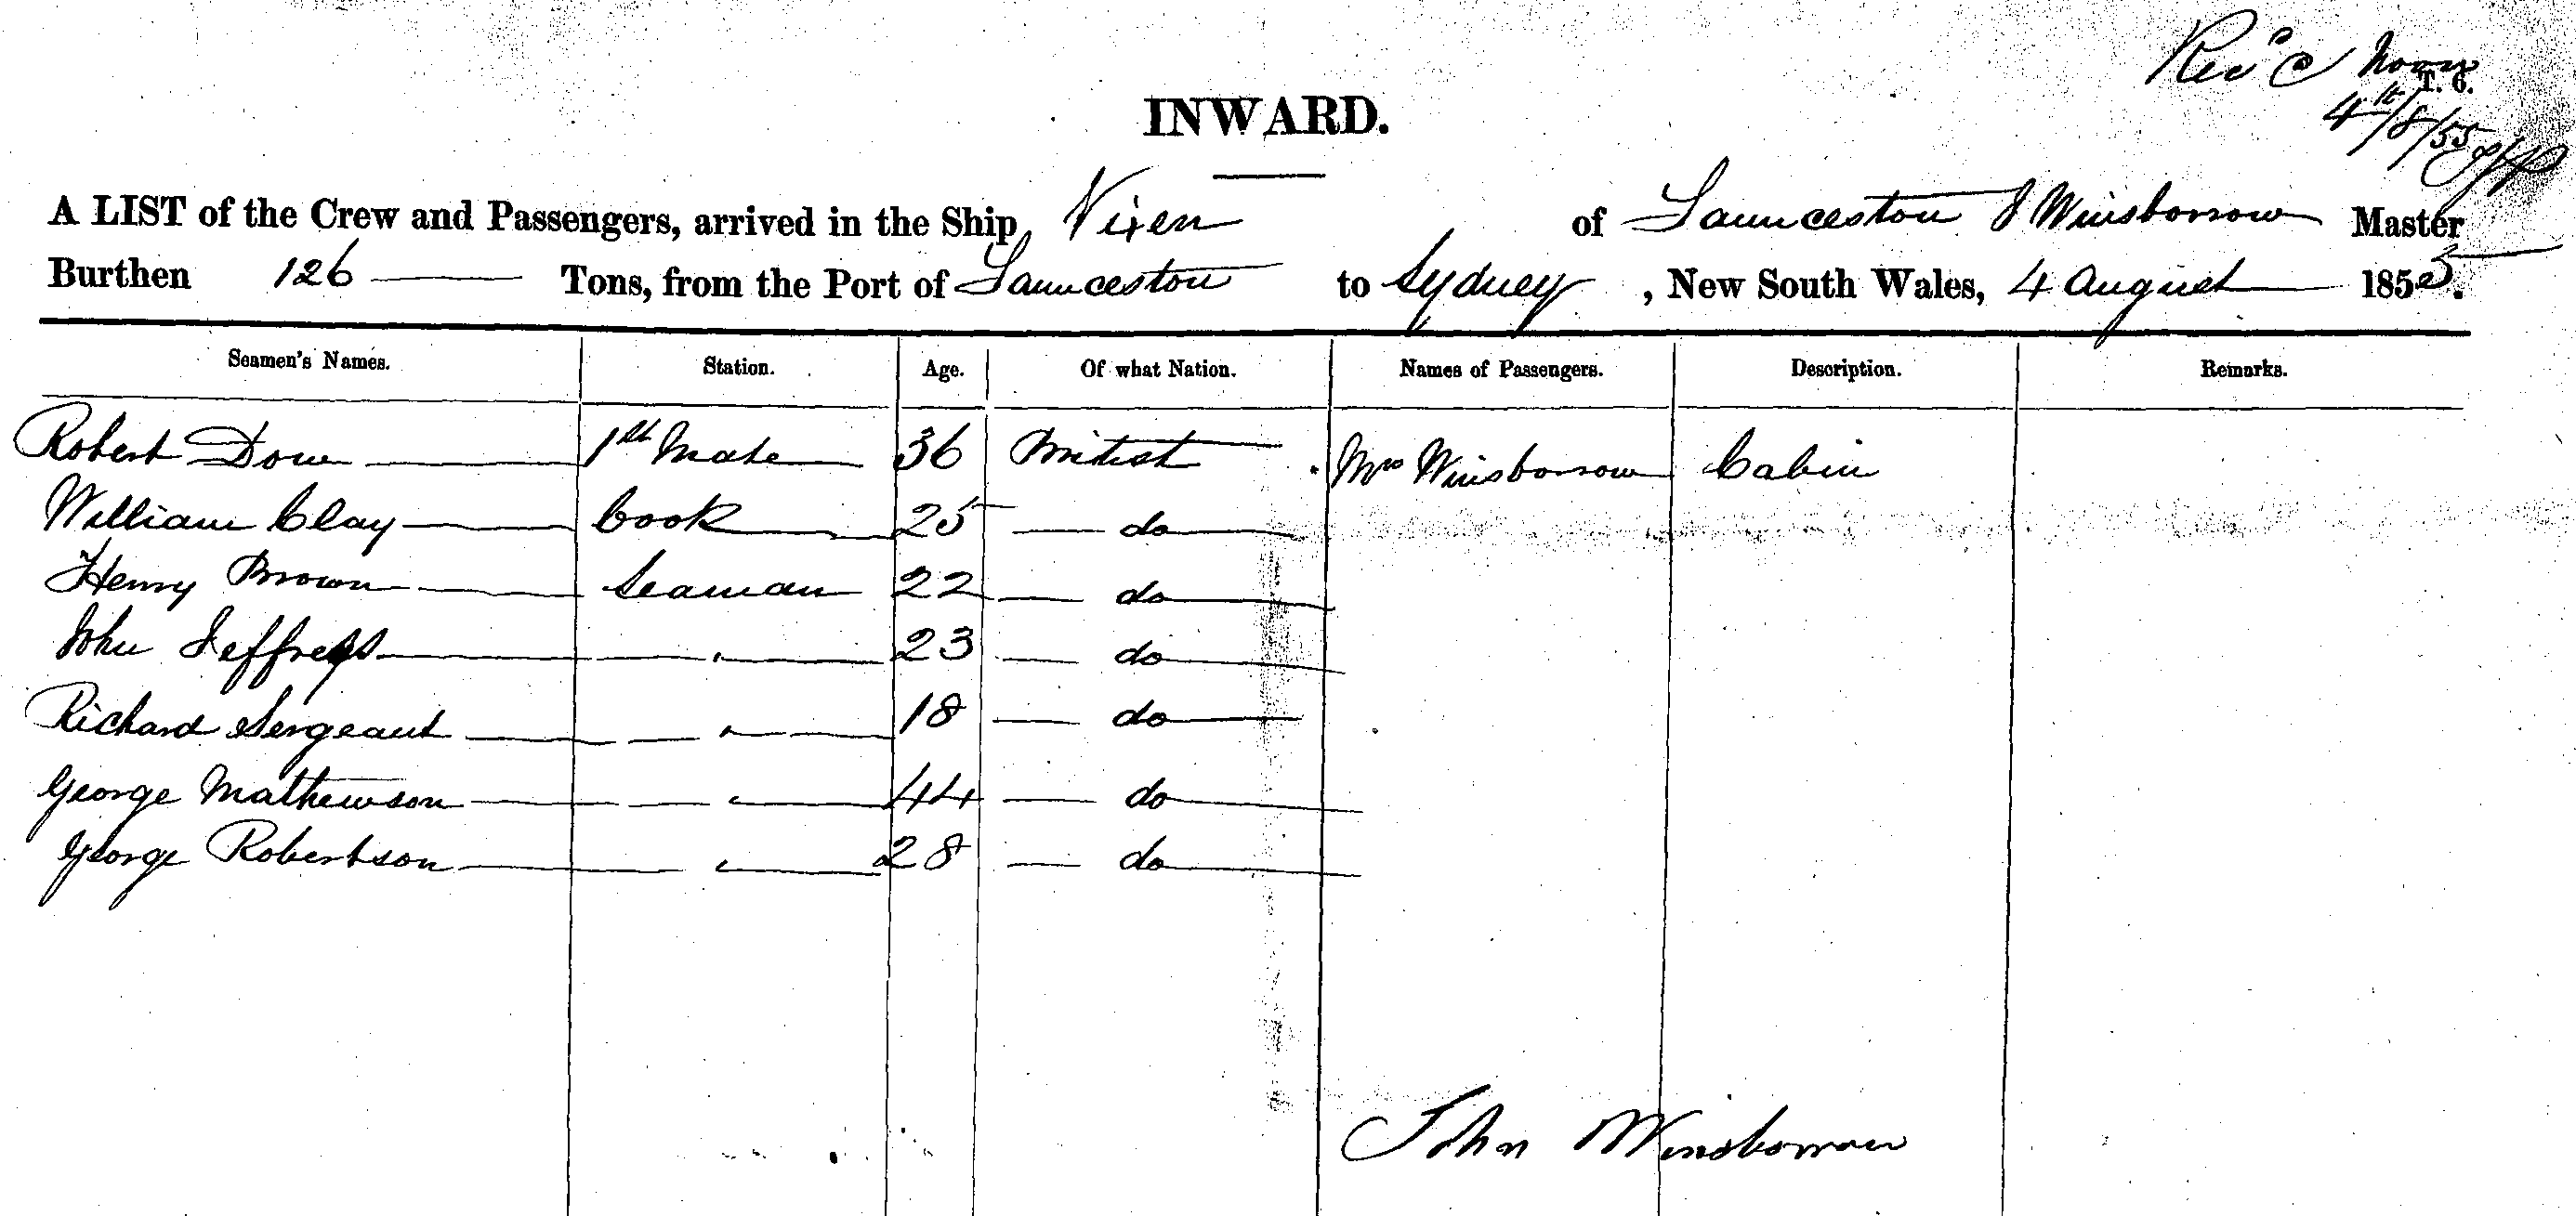 Rec'd Noon
T. 6.
4th/8/55
INWARD.
A LIST of the Crew and Passengers, arrived in the Ship Vixen of Launceston J Winsborrow Master
Burthen 126 Tons, from the Port of Launceston to Sydney, New South Wales, 4 August 1855.
Seamen's Names. Station. Age. Of what Nation. Names of Passengers. Description. Remarks.
Robert Dow 1st Mate 36 British Mrs Winsborrow Cabin
William Clay Cook 25 do
Henry Brown Seaman 22 do
John Jeffreys " 23 do
Richard Sergeant " 18 do
George Mathewson " 44 do
George Robertson " 28 do
John Winsborrow